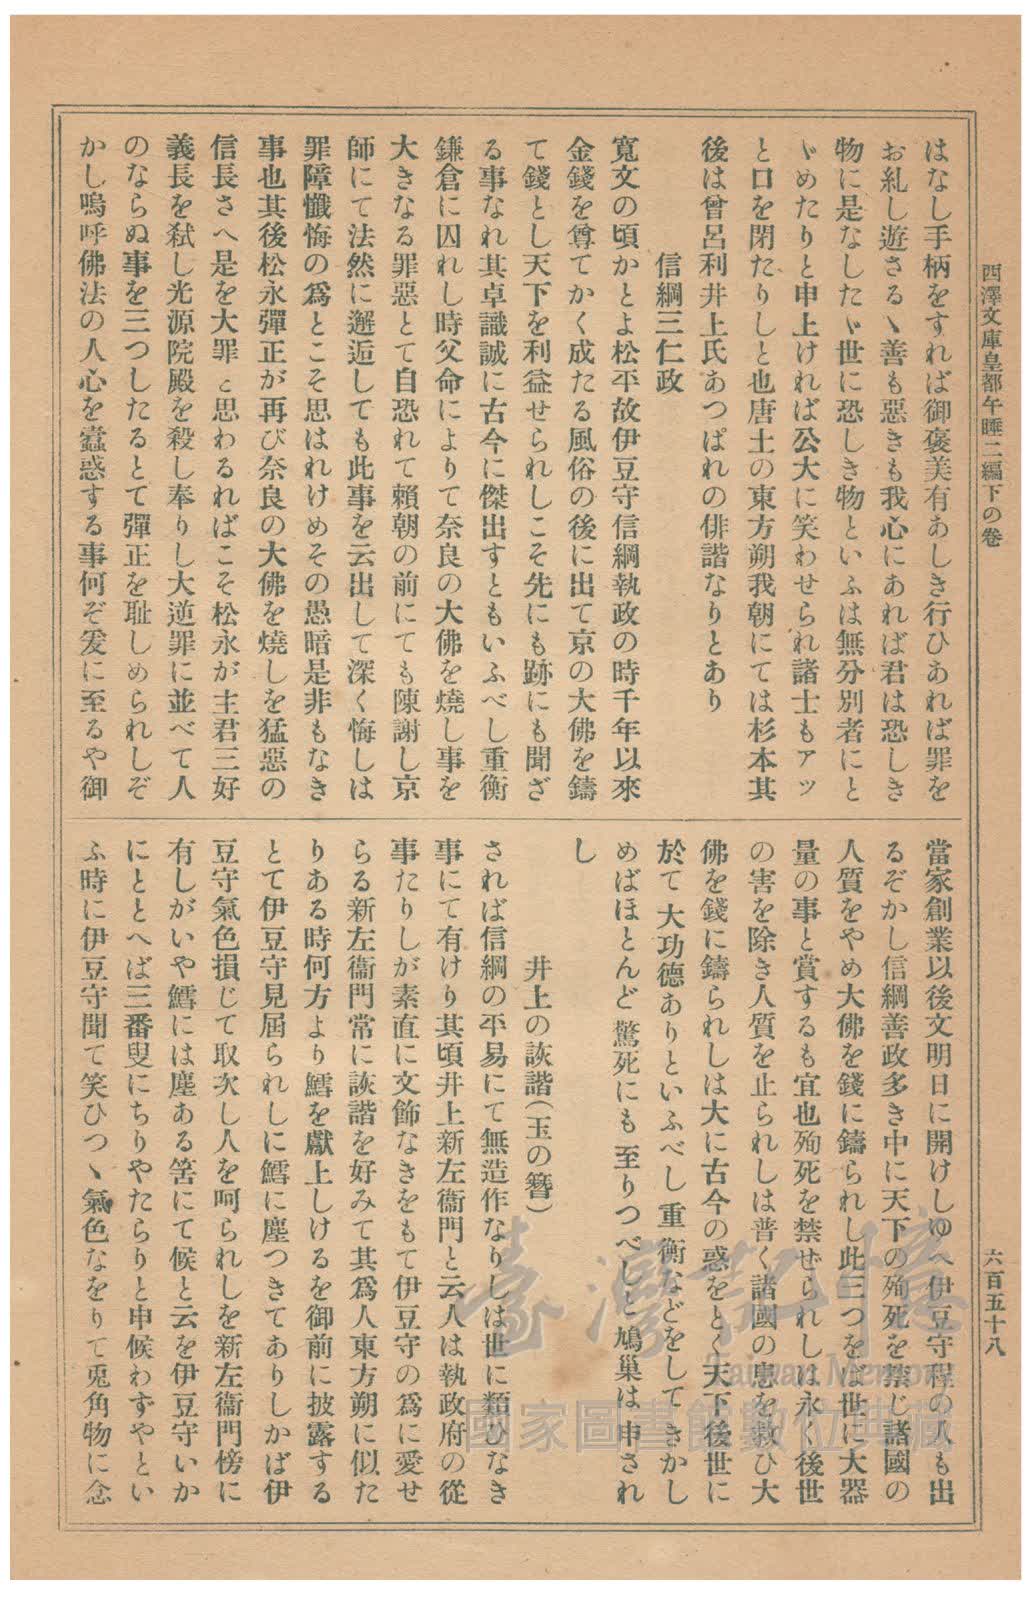 西澤文庫皇都午睡二編下の卷
六百五十八
はなし手柄をすれば御褒美有あしき行ひあれば罪を
お糺し遊さるゝ善も惡きも我心にあれば君は恐しき
物に是なしたゞ世に恐しき物といふは無分別者にと
ゞめたりと申上ければ公大に笑わせられ諸士もアッ
と口を閉たりしと也唐土の東方朔我朝にては杉本其
後は曾呂利井上氏あつぱれの俳諧なりとあり
信綱三仁政
寛文の頃かとよ松平故伊豆守信綱執政の時千年以來
金錢を尊てかく成たる風俗の後に出て京の大佛を鑄
て錢とし天下を利益せられしこそ先にも跡にも聞ざ
る事なれ其卓識誠に古今に傑出すともいふべし重衡
鎌倉に囚れし時父命によりて奈良の大佛を燒し事を
大きなる罪惡とて自恐れて賴朝の前にても陳謝し京
師にて法然に邂逅しても此事を云出して深く悔しは
罪障懺悔の爲とこそ思はれけめその愚暗是非もなき
事也其後松永彈正が再び奈良の大佛を燒しを猛惡の
信長さへ是を大罪と思わるればこそ松永が主君三好
義長を弑し光源院殿を殺し奉りし大逆罪に並べて人
のならぬ事を三つしたるとて彈正を耻しめられしぞ
かし嗚呼佛法の人心を蠹惑する事何ぞ爰に至るや御
當家創業以後文明日に開けしゆへ伊豆守程の人も出
るぞかし信綱善政多き中に天下の殉死を禁じ諸國の
人質をやめ大佛を錢に鑄られし此三つをば世に大器
量の事と賞するも宜也殉死を禁ぜられしは永く後世
の害を除き人質を止られしは普く諸國の患を救ひ大
佛を錢に鑄られしは大に古今の惑をとく天下後世に
於て大功德ありといふべし重衡などをしてきかし
めばほとんど驚死にも至りつべしと鳩巢は申され
し
井上の詼諧（玉の簪）
されば信綱の平易にて無造作なりしは世に類ひなき
事にて有けり其頃井上新左衞門と云人は執政府の從
事たりしが素直に文飾なきをもて伊豆守の爲に愛せ
らる新左衞門常に詼諧を好みて其爲人東方朔に似た
りある時何方より鱈を獻上しけるを御前に披露する
とて伊豆守見屆られしに鱈に塵つきてありしかば伊
豆守氣色損じて取次し人を呵られしを新左衞門傍に
有しがいや鱈には塵ある筈にて候と云を伊豆守いか
にととへば三番叟にちりやたらりと申候わずやとい
ふ時に伊豆守聞て笑ひつゝ氣色なをりて兎角物に念
臺灣記憶
Taiwan Memory
國家圖書館數位典藏